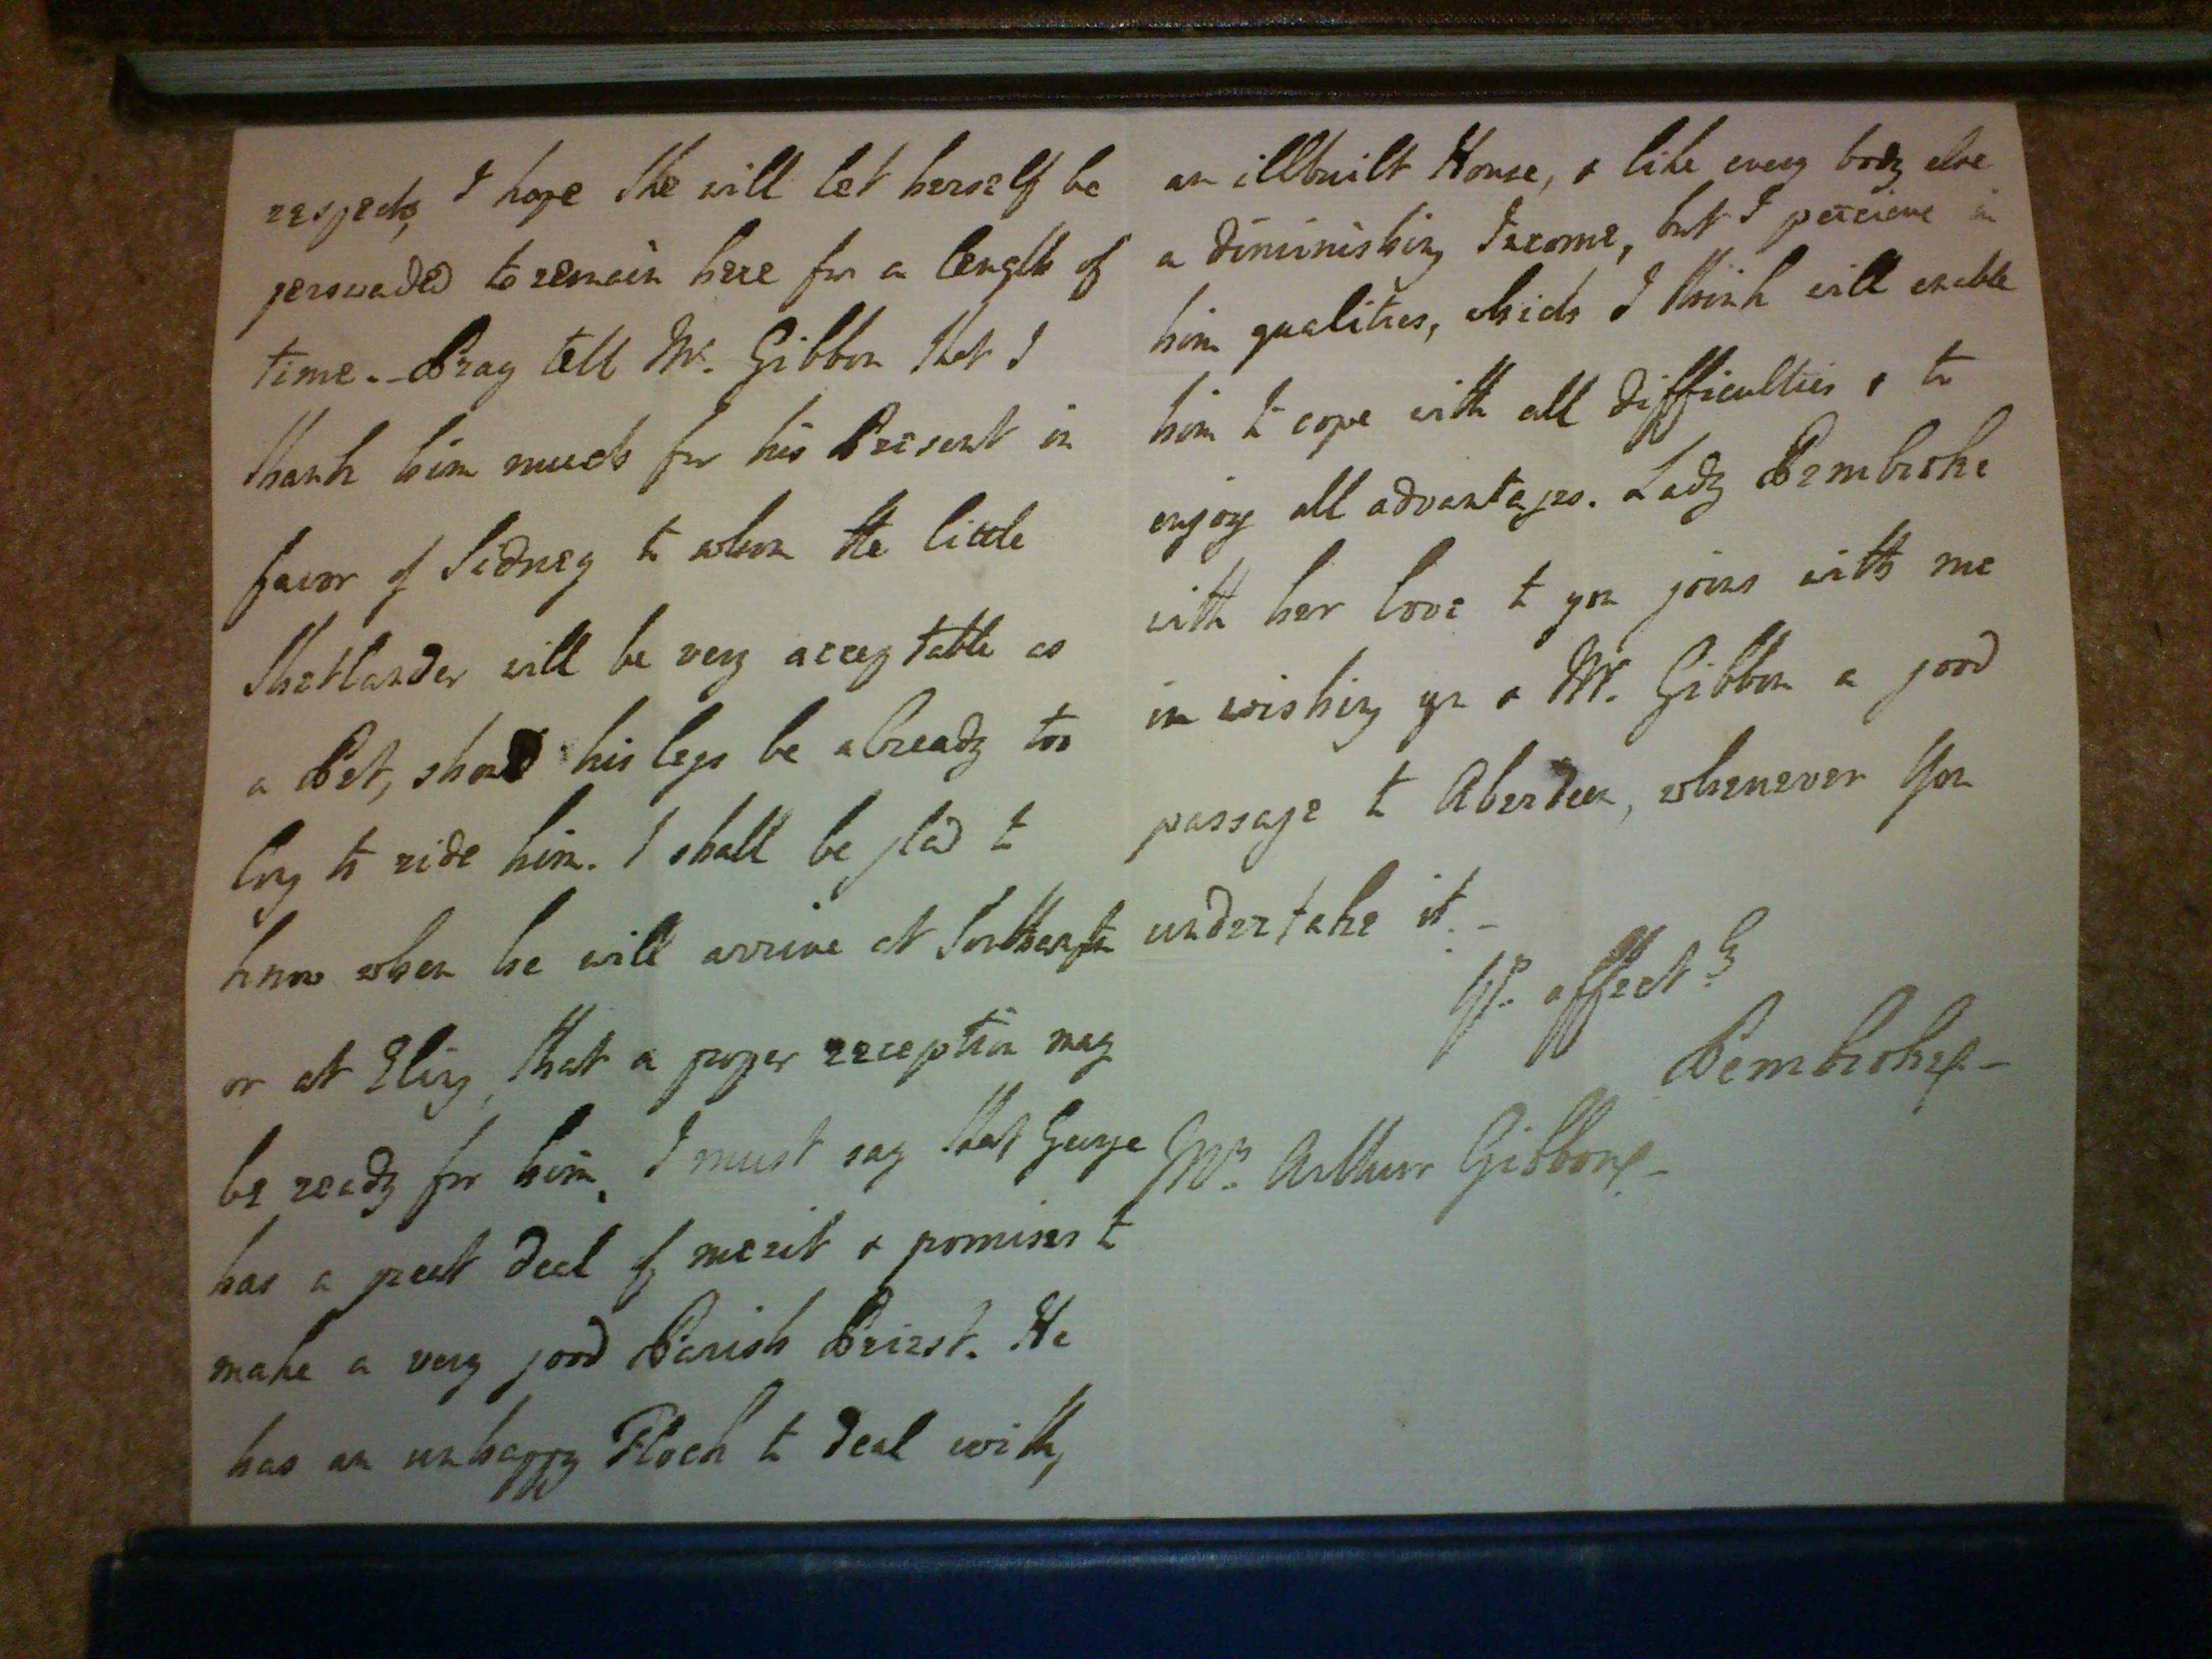 respects, I hope She will let herself be
perswaded to remain here for a length of
time. - Pray tell Mr. Gibbon that I
thank him much for his Present in
favor of Sidney to whom the little
Shetlander will be very acceptable as
a Pet, shoud his legs be already too
long to ride him. I shall be glad to
know when he will arrive at Southampton
or at Eling, that a proper reception may
be ready for him. I must say that George
has a great deal of merit & promises to
make a very good Parish Priest. He
has an unhappy Flock to deal with,
an illbuilt House, & like every body else
a diminishing Income, but I perceive in
him qualities, which I think will enable
him to cope with all difficulties & to
enjoy all advantages. Lady Pembroke
with her love to you joins with me
in wishing you & Mr. Gibbon a good
passage to Aberdeen, whenever You
undertake it. -
Yr. affectly
Pembroke -
Mrs. Arthur Gibbon -